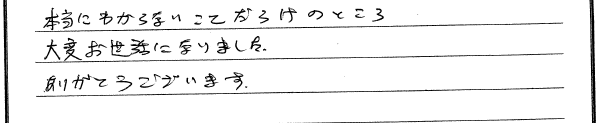 本当にわからないことだらけのところ
大変お世話になりました.
ありがとうございます.